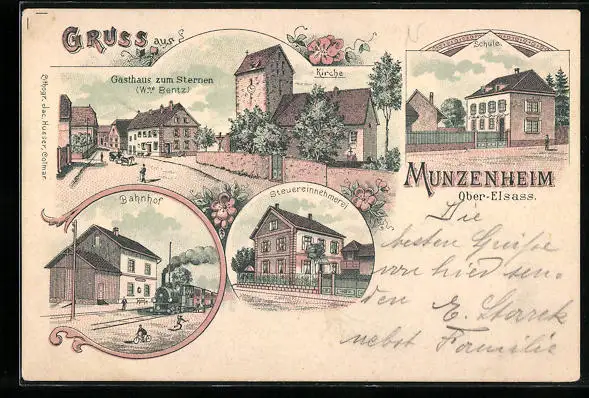 GRUSS aus
Gasthaus zum Sternen
(Wwe Bentz)
Kirche
Schule.
Lithogr. Jac. Hueser, Colmar.
MUNZENHEIM
Ober-Elsass.
Bahnhof
Steuereinnehmerei
Die
besten Grüße
von hier sen-
den E. Storck
nebst Familie